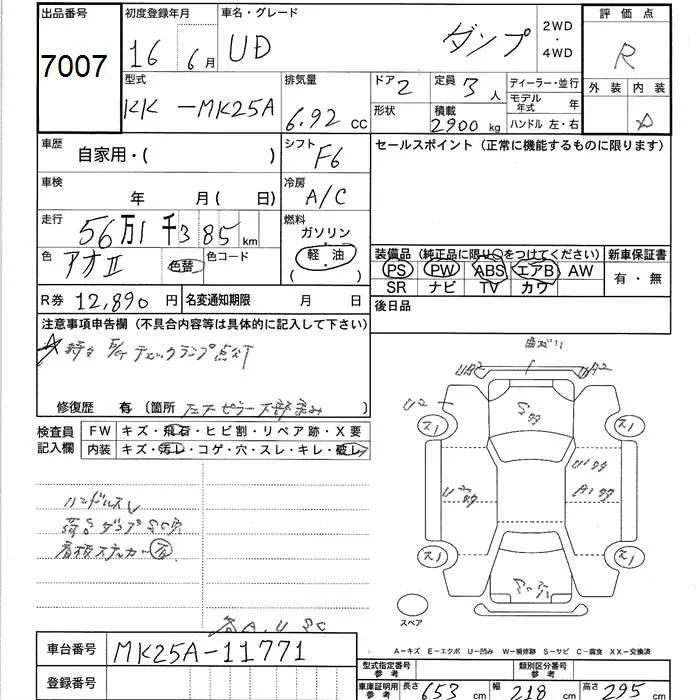 出品番号
7007
初度登録年月
16 6月
車名・グレード
UD ダンプ
2WD
・
4WD
評価点
R
外装 内装
型式
KK-MK25A
排気量
6.92 CC
ドア 2
定員 3人
ディーラー・並行
モデル年式 年
形状
積載
2900 kg
ハンドル 左・右
車歴
自家用・( )
シフト
F6
セールスポイント(正常に機能するものに限ります)
車検
年 月( 日)
冷房
A/C
走行
56万1千385 km
燃料
ガソリン
軽油
( )
色
アオII
色替
色コード
装備品(純正品に限り○をつけてください)
PS PW ABS エアB AW
SR ナビ TV カワ
新車保証書
有・無
R券 12,890 円
名変通知期限 月 日
後日品
注意事項申告欄(不具合内容等は具体的に記入して下さい)
チェックランプ点灯
修復歴 有(箇所 )
検査員記入欄
FW キズ・飛石・ヒビ割・リペア跡・X要
内装 キズ・汚レ・コゲ・穴・スレ・キレ・破レ
ハンドルスレ
看板ステッカー有
UA2
A2
U2
ス1
ス1
ス1
ス1
スペア
A-キズ E-エクボ U-凹み W-補修跡 S-サビ C-腐食 XX-交換済
車台番号
MK25A-11771
登録番号
型式指定番号
参考
類別区分番号
参考
車庫証明用
参考
長さ 653 cm
幅 218 cm
高さ 295 cm